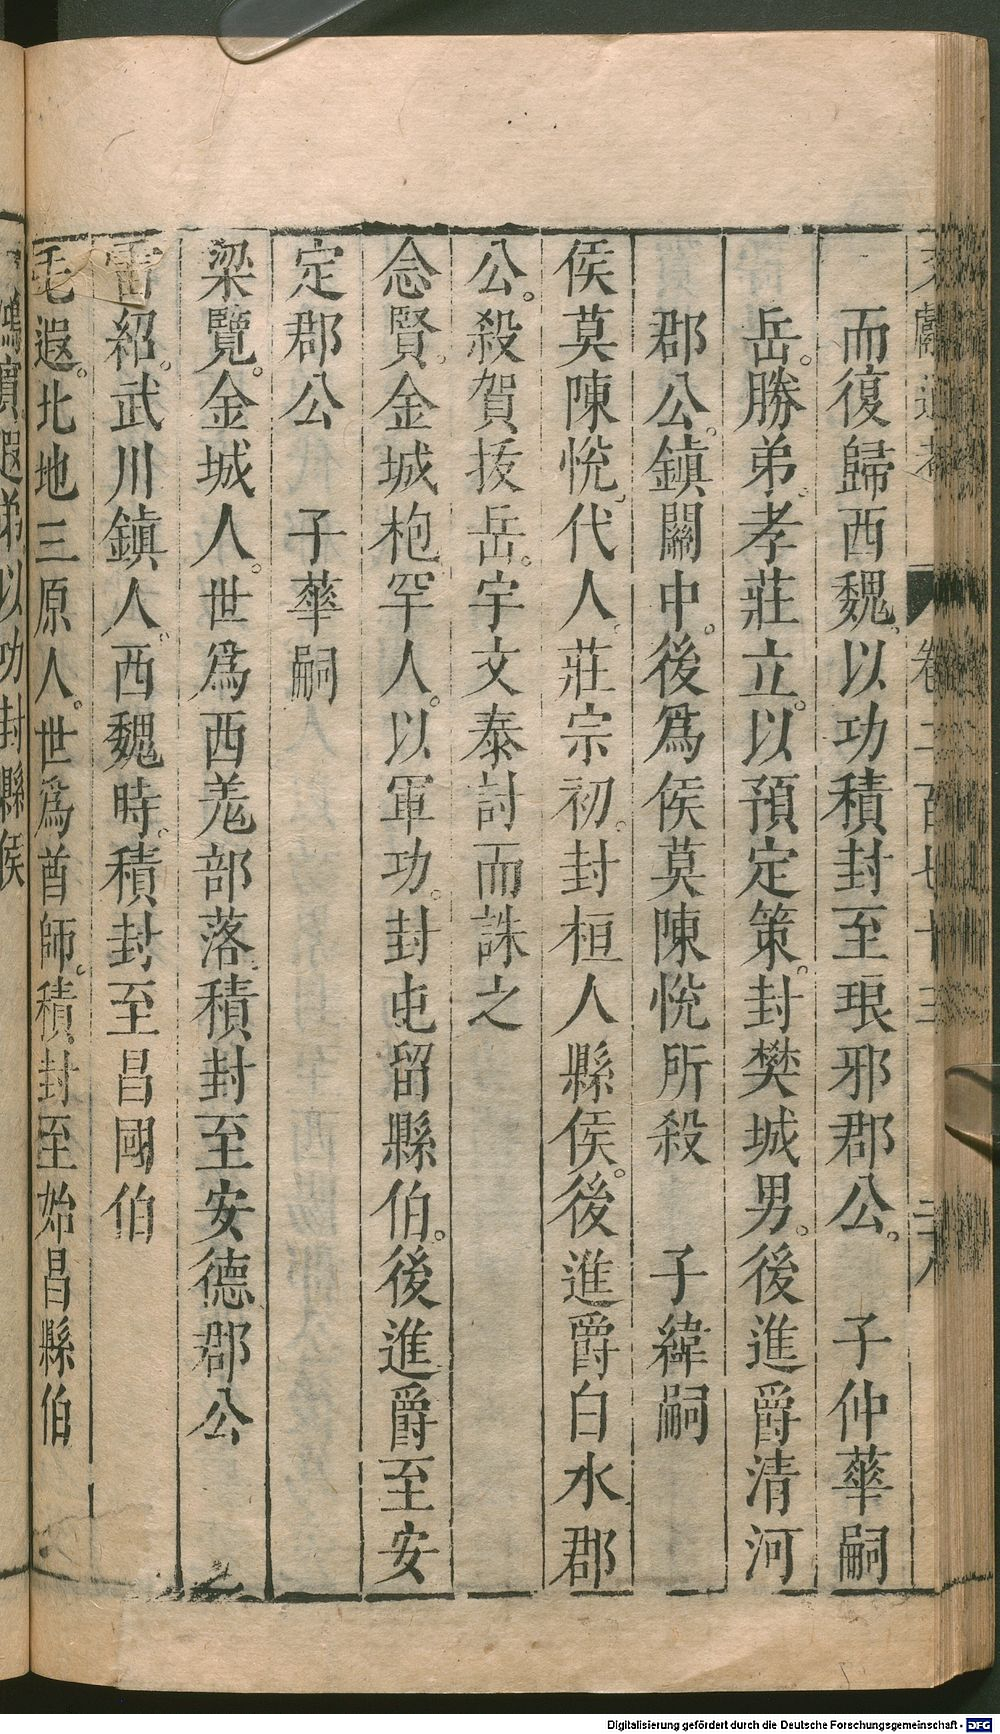 文獻通考 卷二百七十三 二十八
而復歸西魏。以功積封至琅邪郡公。 子仲華嗣
岳。勝弟。孝莊立。以預定策。封樊城男。後進爵清河
郡公。鎮關中。後爲侯莫陳悅所殺 子緯嗣
侯莫陳悅。代人。莊宗初。封桓人縣侯。後進爵白水郡
公。殺賀拔岳。宇文泰討而誅之
念賢。金城枹罕人。以軍功。封屯留縣伯。後進爵至安
定郡公 子華嗣
梁覽。金城人。世爲西羌部落。積封至安德郡公
雷紹。武川鎮人。西魏時。積封至昌國伯
毛遐。北地三原人。世爲酋帥。積封至始昌縣伯
鴻賓遐弟以功封縣侯
Digitalisierung gefördert durch die Deutsche Forschungsgemeinschaft - DFG